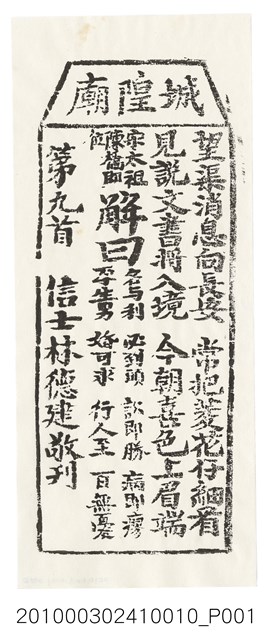 城隍廟
望渠消息向長安　常把菱花仔細看
見說文書將入境　今朝喜色上眉瑞
宋太祖
陳橋即位
解曰
名与利　必到頭　訟即勝　病即瘳
孕生男　婚可求　行人至　百無憂
第九首　信士林德建敬刊
201000302410010_P001